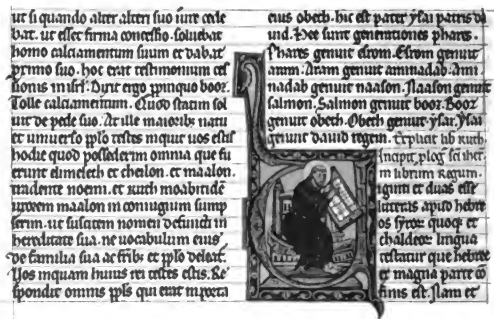 ut si quando alter alteri suo iure cede
bat. ut esset firma concessio. soluebat
homo calciamentum suum et dabat
proximo suo. hoc erat testimonium ces
sionis in isrl. Dixit ergo propinquo booz.
Tolle calciamentum. Quod statim sol
uit de pede suo. At ille maioribus natu
et uniuerso pplo testes inquit uos estis
hodie quod possederim omnia que fu
erunt elimelech et cheilon. et maalon.
tradente noemi. et Ruth moabitide
uxorem maalon in coniugium sump
serim. ut suscitem nomen defuncti in
hereditate sua. ne uocabulum eius
de familia sua ac fribus et pplo deleat.
Uos inquam huius rei testes estis. Re
spondit omnis ppls qui erat in porta
eius obeth. hic est pater ysai patris da
uid. Hee sunt generationes phares.
Phares genuit esrom. Esrom genuit
aram. Aram genuit aminadab. Ami
nadab genuit naason. Naason genuit
salmon. Salmon genuit booz. Booz
genuit obeth. Obeth genuit ysai. Ysai
genuit dauid regem. Explicit lib ruth.
Incipit plog sci iheronimi
in librum Regum.
iginti et duas esse
litteras apud hebre
os syrorum quoque et
chaldeorum lingua
testatur que hebree
et magna parte con
finis est. Nam et